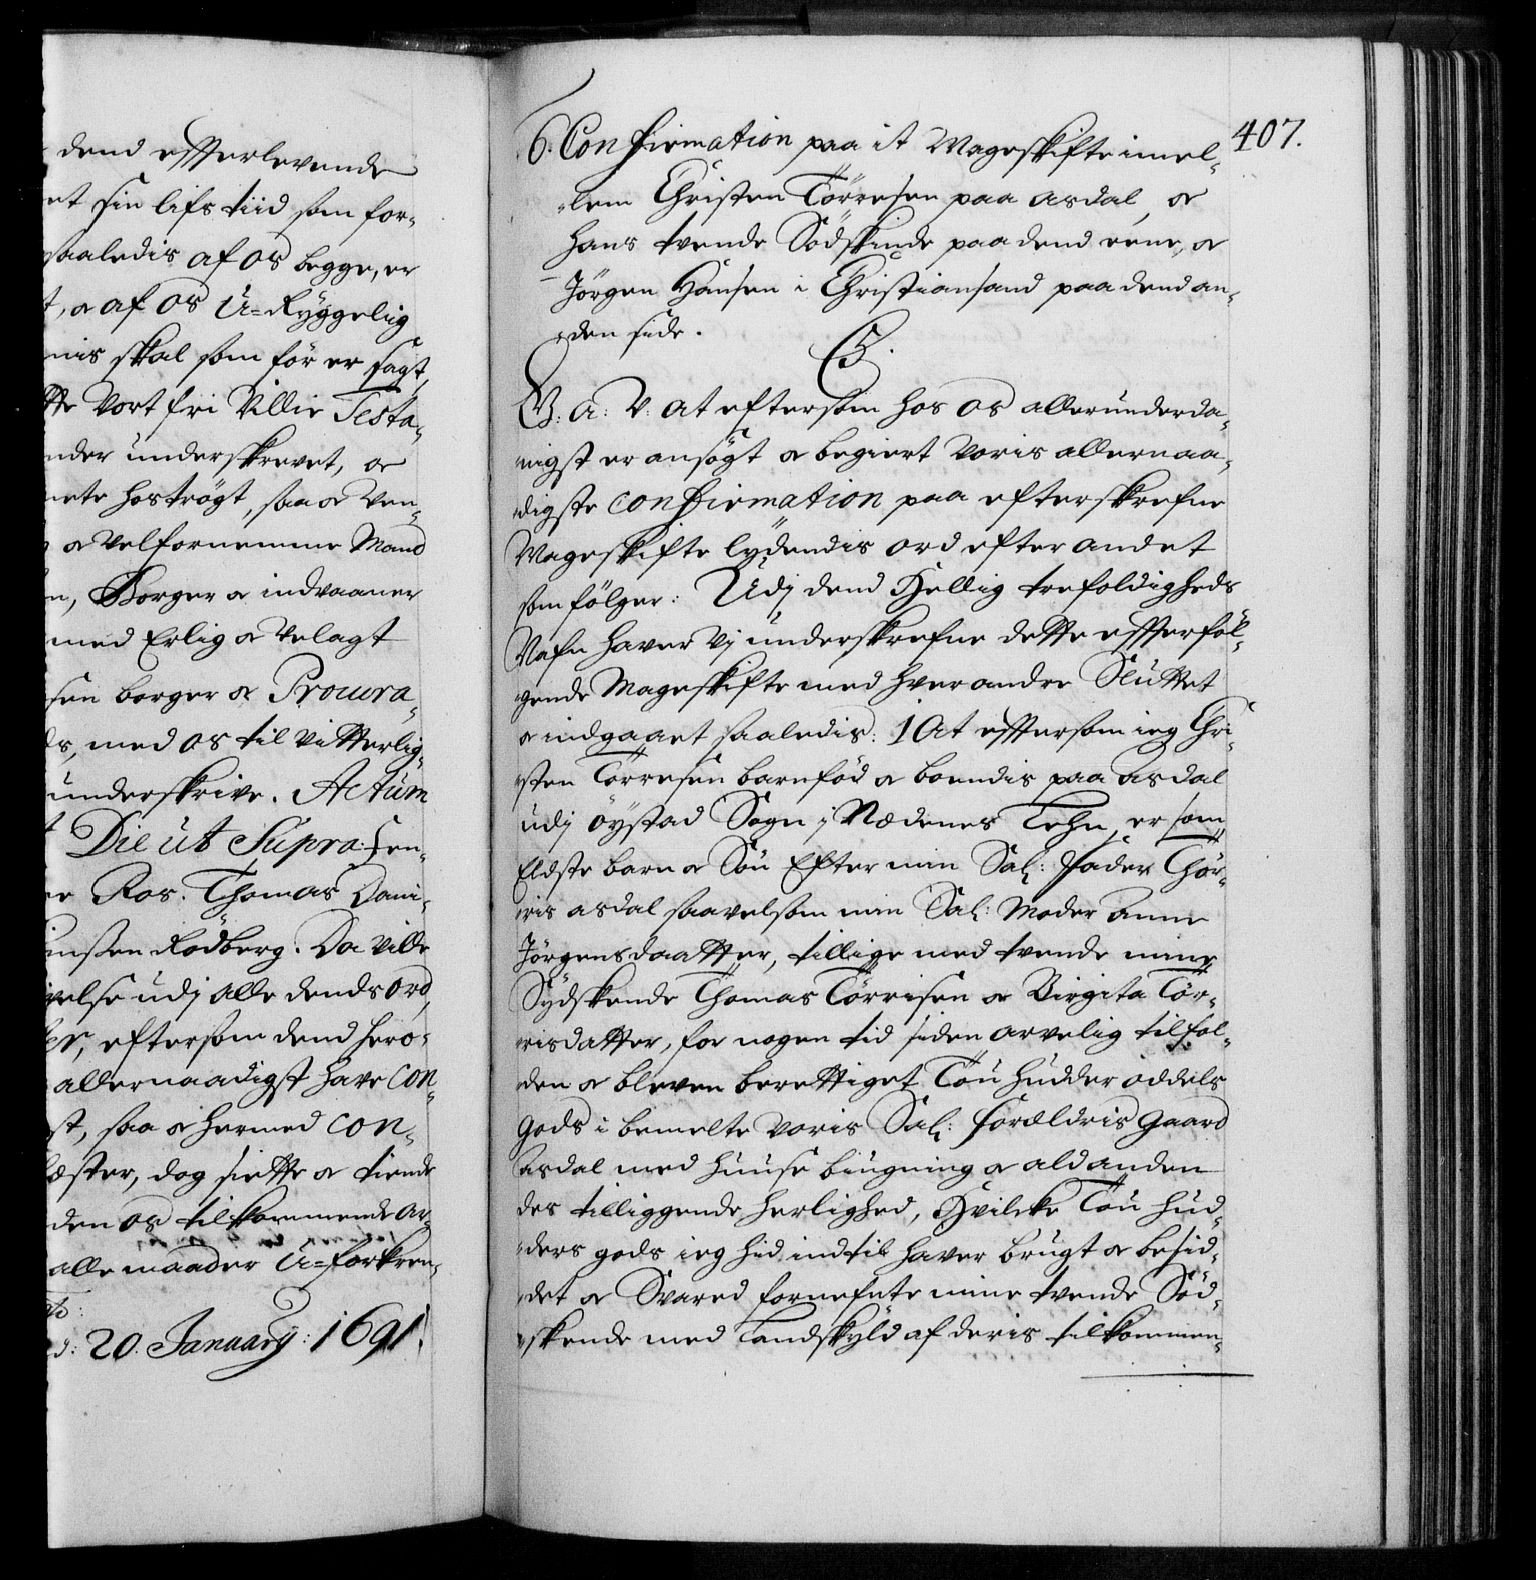 dend effterlevende
et sin lifs tiid som for-
saaledis af os begge, er
t, oc af os U=Ryggelig
nis skal som för er sagt,
tte Vort fri Villie Testa-
nder underskrevet, oc
nete hoströgt, saa oc Ven-
oc Velfornemme Mand
n, Borger oc indvaaner
med Erlig oc Velagt
sen borger oc Procura-
ds, med os til Vitterlig-
underskrive. Actum
t Die ut Supra
er Ros. Thomas Dani-
ensen Rödberg. Da Ville
velse udj alle dends ord,
er, eftersom dend hero-
allernaadigst have con-
st, saa oc hermed con-
ester, dog siette oc tiende
den os tilkommende ar-
alle maader U=forkren-
d: 20. January: 1691.
407.
6. Confirmation paa it Mageskifte imel-
lem Christen Törresen paa asdal, oc
hans tvende Södskinde paa dend eene, oc
Jörgen Hansen i Christiansand paa dend an-
den side.
C5.
G: a: V: at eftersom hos os allerunderda-
nigst er ansögt oc begiert Voris allernaa-
digste confirmation paa efterskrefne
Mageskifte lydendis ord efter andet
som fölger: Udj dend Hellig trefoldigheds
Nafn haver Vj underskrefne dette effterföl-
gende Mageskifte med hverandre Sluttet
oc indgaaet saaledis: 1 At efftersom ieg Chri-
sten Törresen barnföd oc boendis paa asdal
udj öystad Sogn j Nedenes Lehn, er som
Eldste barn oc Sön Efter min Sal: Fader Thör-
ris asdal saavelsom min Sal: Moder anne
Jörgensdaatter, tillige med tvende mine
Sydskende Thomas Törrisen oc Birgita Tör-
risdatter, for nogen tid siden arvelig tilfal-
den oc bleven berettiget Tou hudder oddels
gods i bemelte Voris Sal: forældris gaard
asdal med huuse biugning oc ald anden
des tilliggende herlighed, Hvilcke Tou hud-
ders gods ieg hid indtil haver brugt oc besid-
det oc Svared fornefnte mine tvende Söd-
skende med Landskyld af deris tilkommen-